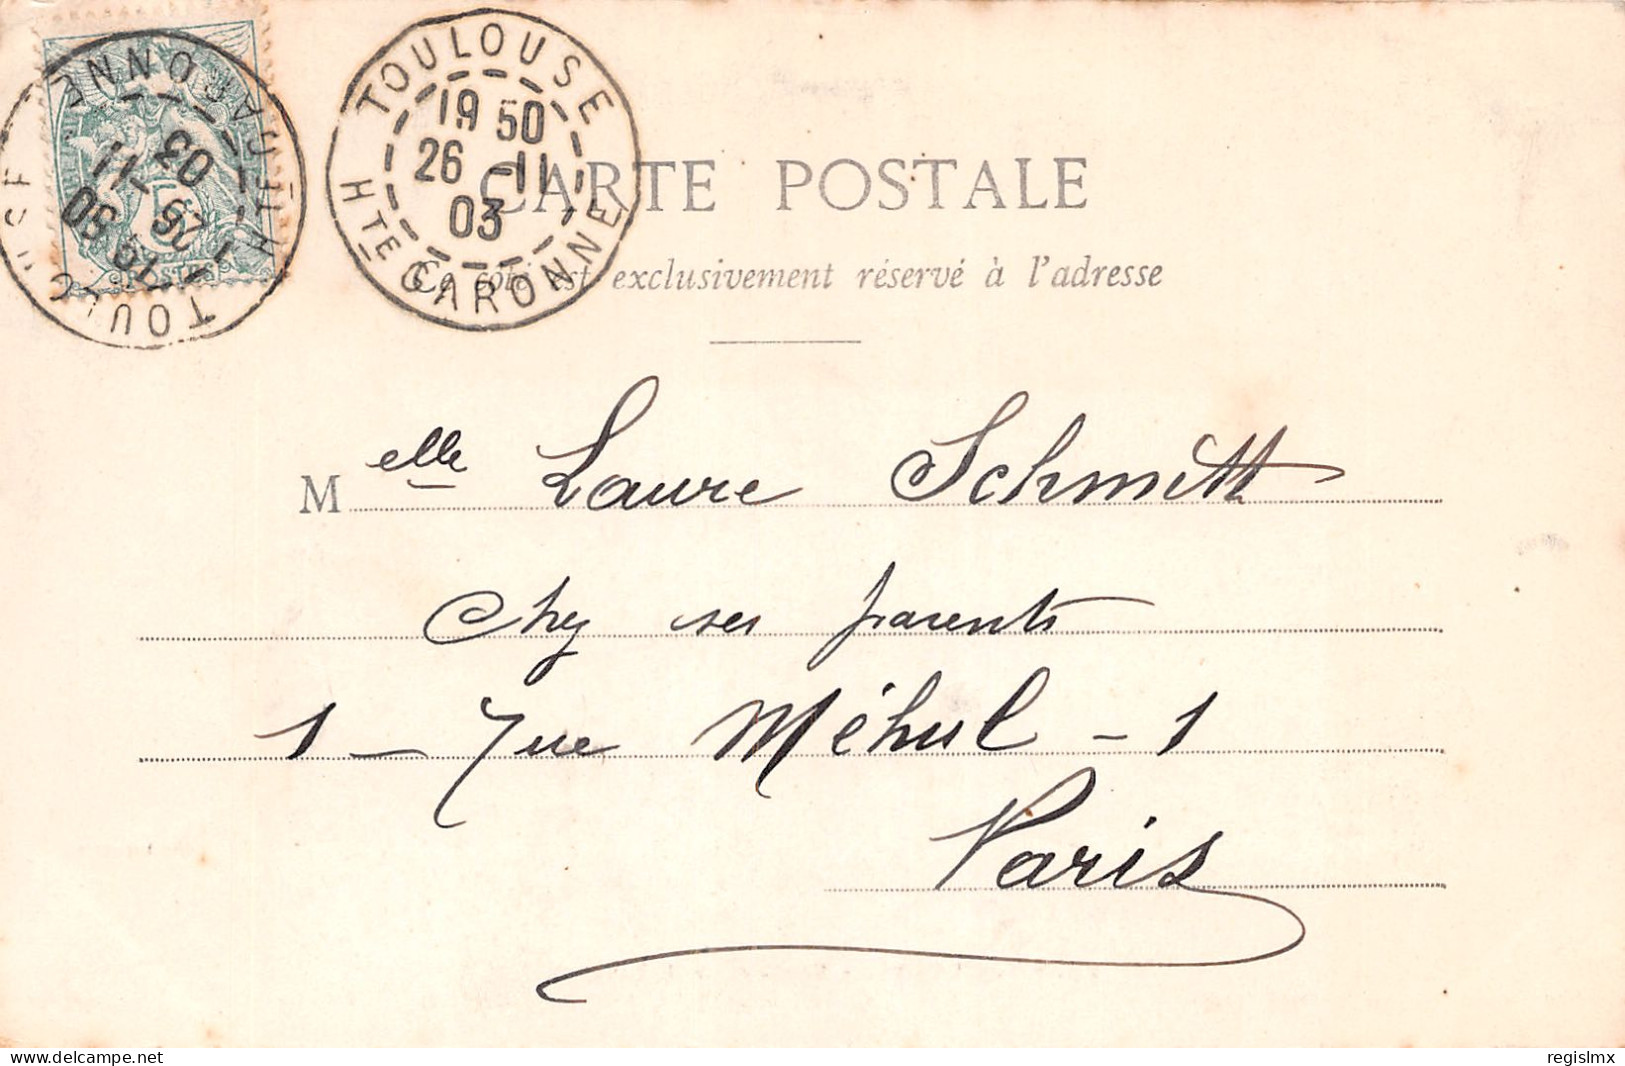 TOULOUSE
19 50
26 -11
03
Hte GARONNE
TOULOUSE
19 50
26 -11
03
Hte GARONNE
5
POSTES
CARTE POSTALE
Ce côté est exclusivement réservé à l'adresse
Melle Laure Schmitt
Chez ses parents
1 - rue Méhul - 1
Paris
www.delcampe.net
regislmx